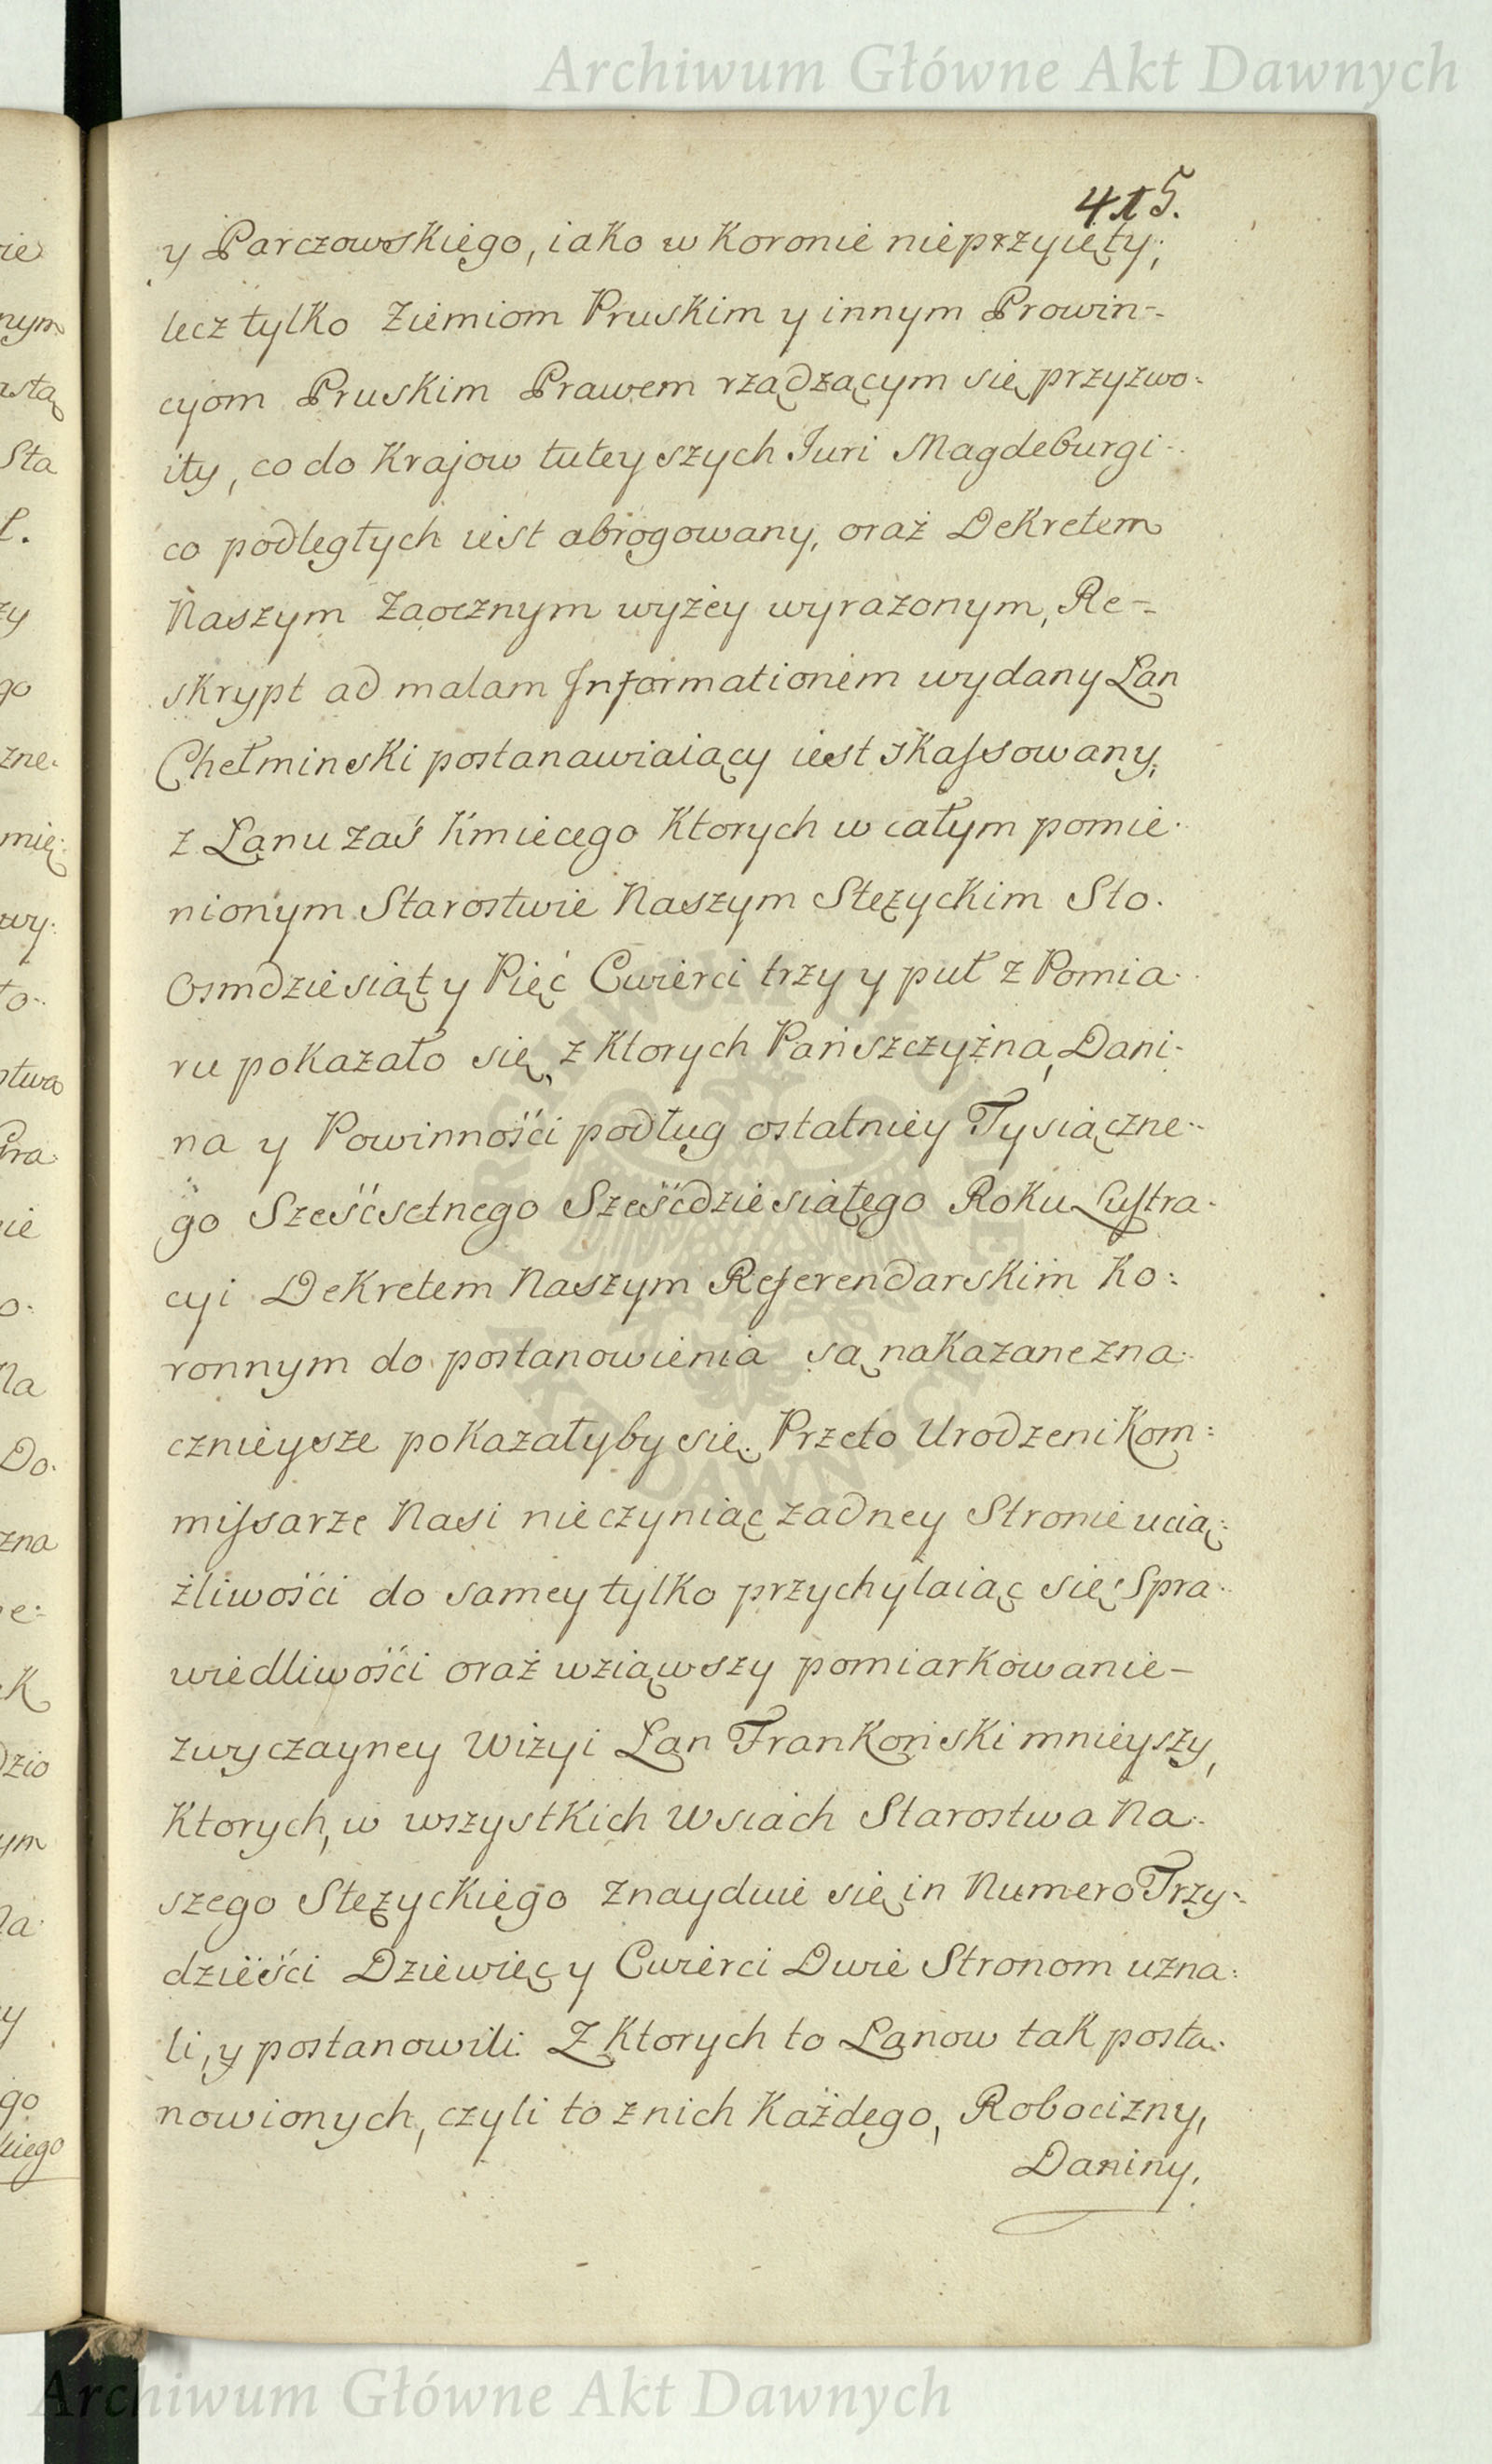 Archiwum Główne Akt Dawnych
415.
y Parczowskiego, iako w Koronie nieprzyięty;
lecz tylko Ziemiom Pruskim y innym Prowin-
cyom Pruskim Prawem rządzącym się przyzwo:
ity, co do Krajow tuteyszych Juri Magdeburgi-
co podległych iest abrogowany, oraz Dekretem
Naszym Zaocznym wyżey wyrażonym, Re-
skrypt ad malam Informationem wydany Łan
Chełminski postanawiaiący iest skassowany,
z Łanu zaś Kmiecego Ktorych w całym pomie-
nionym Starostwie Naszym Stężyckim Sto.
Osmdziesiąt y Pięć Cwierci trzy y puł z Pomia-
ru pokazało się, z Ktorych Pańszczyzna, Dani-
na y Powinności podług ostatniey Tysiączne-
go Sześćsetnego Sześćdziesiątego Roku Lustra-
cyi Dekretem Naszym Referendarskim Ko:
ronnym do postanowienia są nakazane zna-
cznieysze pokazałyby się. Przeto Urodzeni Kom:
missarze Nasi nieczyniąc żadney Stronie ucią:
żliwości do samey tylko przychylaiąc się Spra-
wiedliwości oraz wziąwszy pomiarkowanie-
zwyczayney Wizyi Łan Frankoński mnieyszy,
Ktorych, w wszystkich Wsiach Starostwa Na-
szego Stężyckiego znayduie się in Numero Trzy-
dzieści Dziewięć y Cwierci Dwie Stronom uzna:
li, y postanowili. Z Ktorych to Łanow tak posta-
nowionych, czyli to z nich Każdego, Robocizny,
Daniny,
Archiwum Główne Akt Dawnych